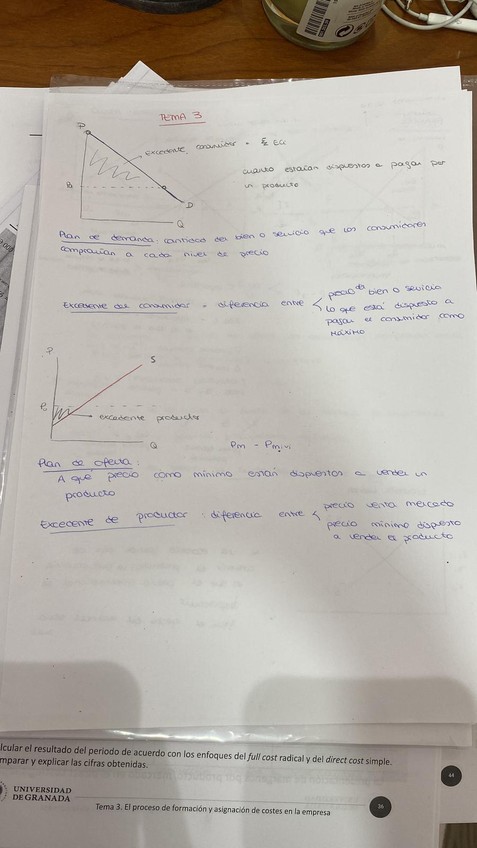 TEMA 3
P
excedente consumidor = 
cuanto estarían dispuestos a pagar por
un producto
P₀
D
Q
Plan de demanda: cantidad de bien o servicio que los consumidores
comprarían a cada nivel de precio
Excedente del consumidor = diferencia entre
precio de bien o servicio
lo que está dispuesto a
pagar el consumidor como
máximo
P
S
excedente productor
Q
Pm - Pmin
Plan de oferta:
A que precio como mínimo están dispuestos a vender un
producto
Excedente de productor: diferencia entre
precio venta mercado
precio mínimo dispuesto
a vender el producto
lcular el resultado del periodo de acuerdo con los enfoques del full cost radical y del direct cost simple.
mparar y explicar las cifras obtenidas.
44
UNIVERSIDAD
DE GRANADA
Tema 3. El proceso de formación y asignación de costes en la empresa
36